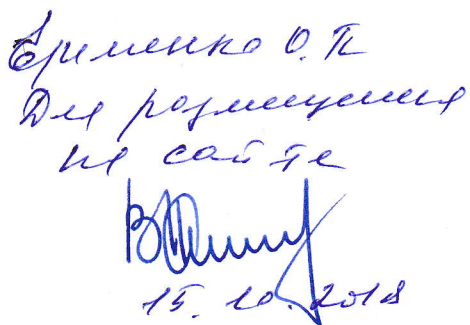 Ерименко О.П
Для розмищення
на сайте
15.10.2018